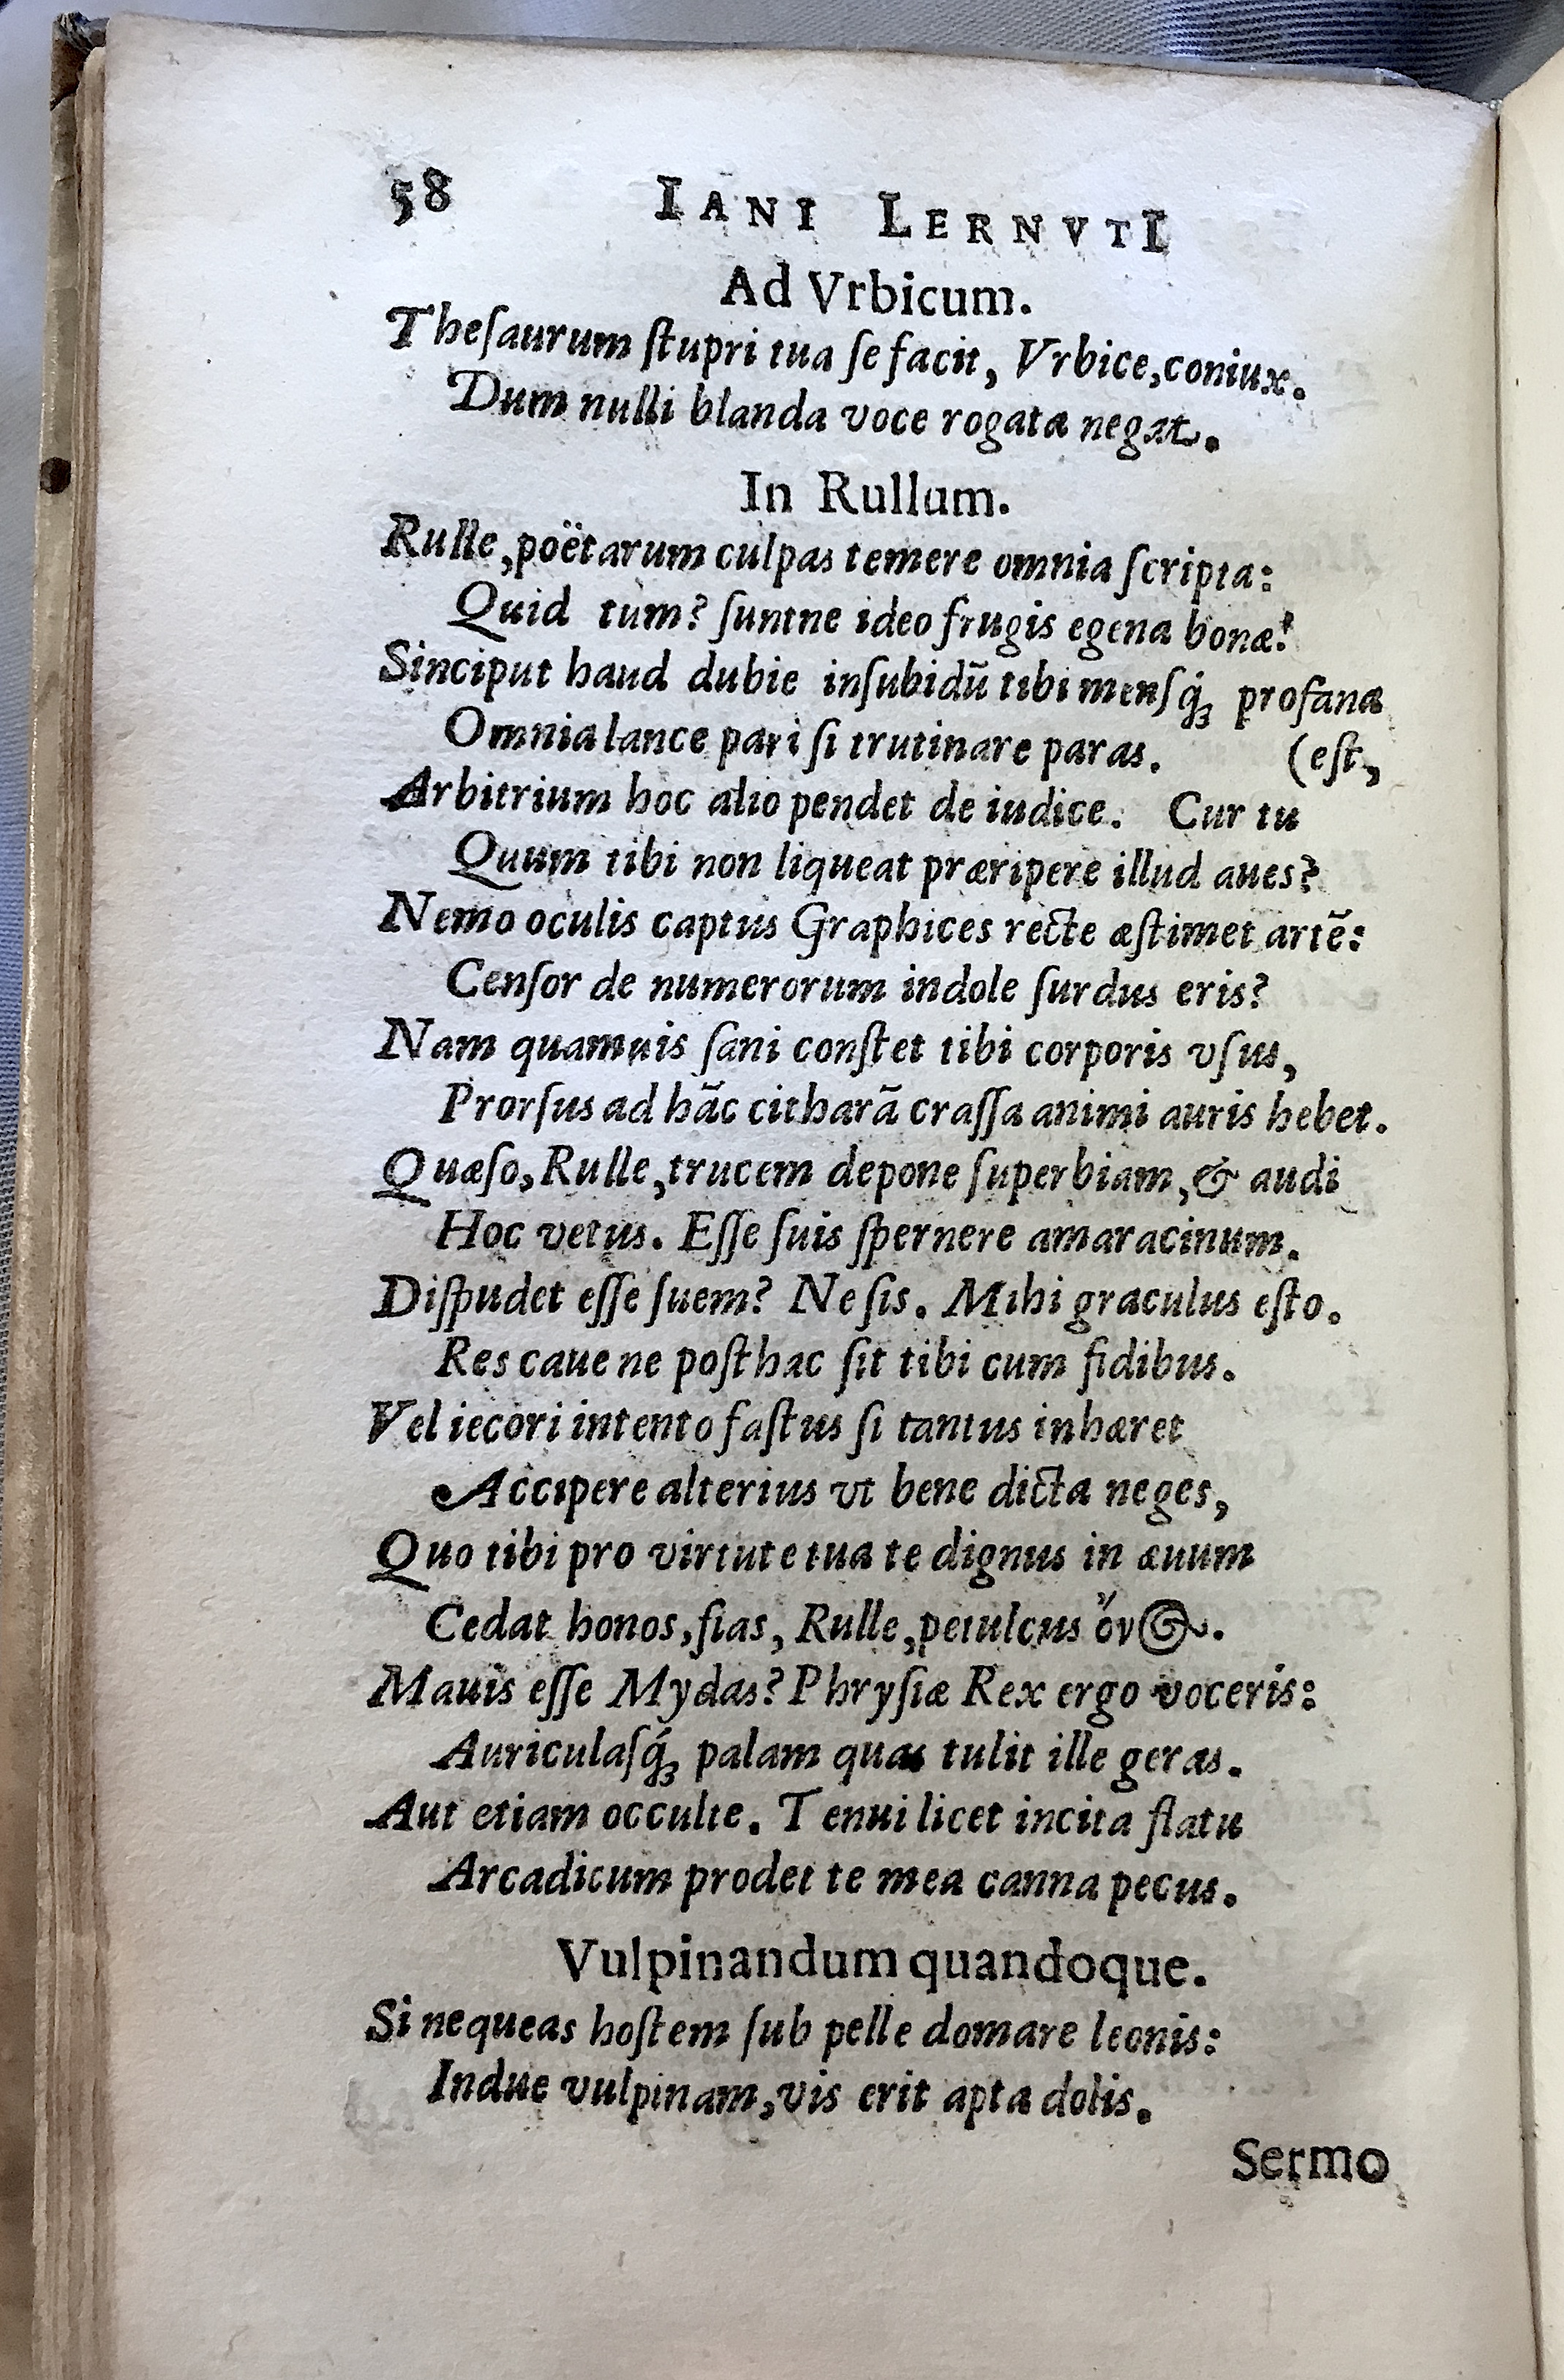 58 IANI LERNVTI
Ad Vrbicum.
Theſaurum ſtupri tua ſe facit, Vrbice, coniux.
Dum nulli blanda voce rogata negat.
In Rullum.
Rulle, poëtarum culpas temere omnia ſcripta:
Quid tum? ſuntne ideo frugis egena bonæ?
Sinciput haud dubie inſubidū tibi menſq́ꝫ profana
Omnia lance pari ſi trutinare paras. (eſt,
Arbitrium hoc alio pendet de iudice. Cur tu
Quum tibi non liqueat præripere illud aues?
Nemo oculis captus Graphices recte æſtimet artē:
Cenſor de numerorum indole ſurdus eris?
Nam quamuis ſani conſtet tibi corporis vſus,
Prorſus ad hāc citharā craſſa animi auris hebet.
Quæſo, Rulle, trucem depone ſuperbiam, & audi
Hoc vetus. Eſſe ſuis ſpernere amaracinum.
Diſpudet eſſe ſuem? Ne ſis. Mihi graculus eſto.
Res caue ne poſthac ſit tibi cum fidibus.
Vel iecori intento faſtus ſi tantus inhæret
Accipere alterius vt bene dicta neges,
Quo tibi pro virtute tua te dignus in æuum
Cedat honos, ſias, Rulle, petulcus ὄνος.
Mauis eſſe Mydas? Phryſiæ Rex ergo voceris:
Auriculaſq́ꝫ palam quas tulit ille geras.
Aut etiam occulte. Tenui licet incita flatu
Arcadicum prodet te mea canna pecus.
Vulpinandum quandoque.
Si nequeas hoſtem ſub pelle domare leonis:
Indue vulpinam, vis erit apta dolis.
Sermo